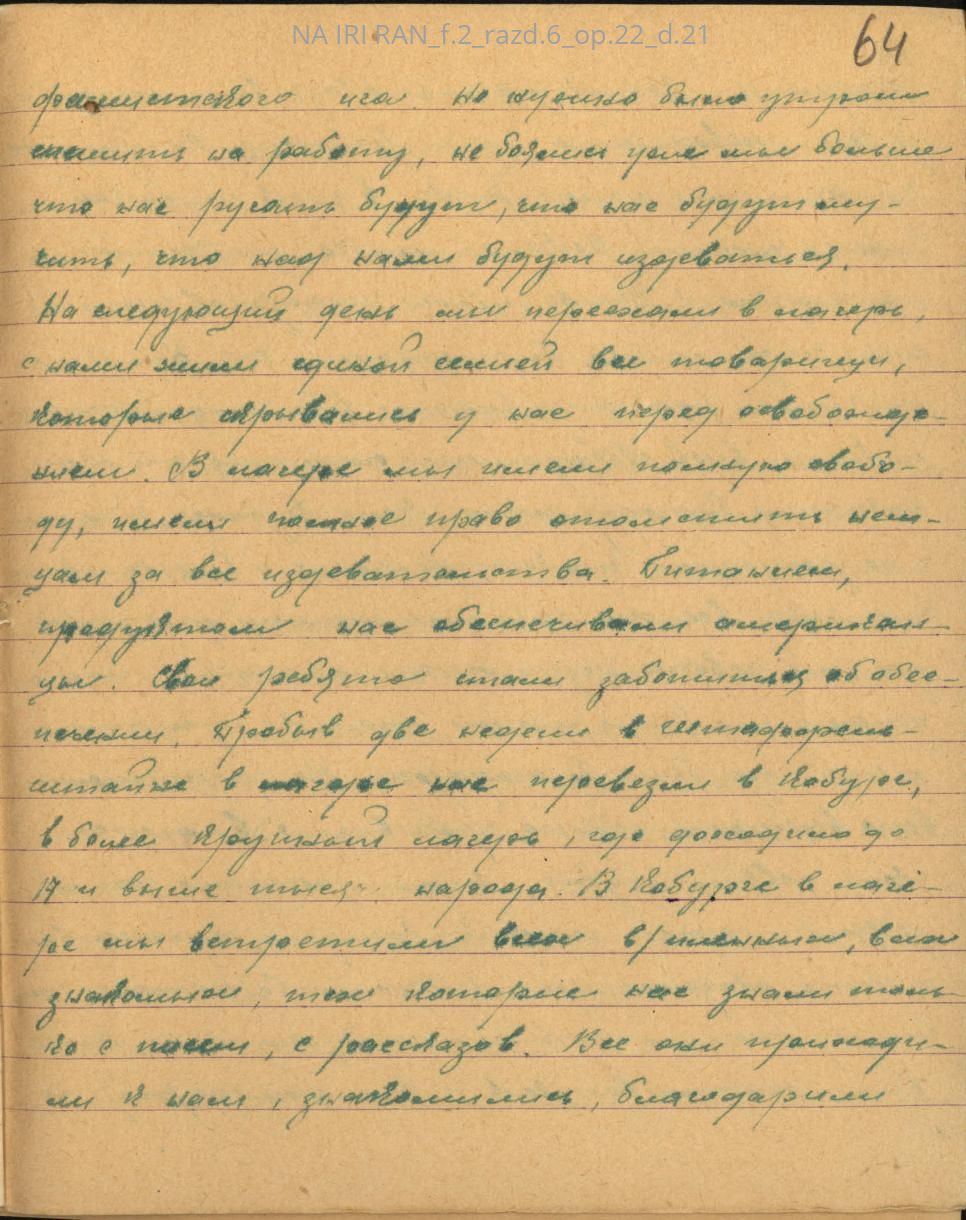 NA IRI RAN_f.2_razd.6_op.22_d.21
64
фашистского ига. Не нужно было утром
спешить на работу, не боялись уже мы больше
что нас ругать будут, что нас будут му-
чить, что над нами будут издеваться.
На следующий день мы переехали в лагерь,
с нами жили единой семьей все товарищи,
которые скрывались у нас перед освобожде-
нием. В лагере мы имели полную свобо-
ду, имели полное право отомстить нем-
цам за все издевательства. Питанием,
продуктом нас обеспечивали американ-
цы. Свои ребята стали заботиться об обес-
печении. Пробыв две недели в
в лагере нас перевезли в Кобург,
в более крупный лагерь, где доходило до
17 и выше тысяч народа. В Кобурге в лаге-
ре мы встретили всех в/пленных, всех
знакомых, тех которые нас знали толь-
ко с писем, с рассказов. Все они приходи-
ли к нам, знакомились, благодарили